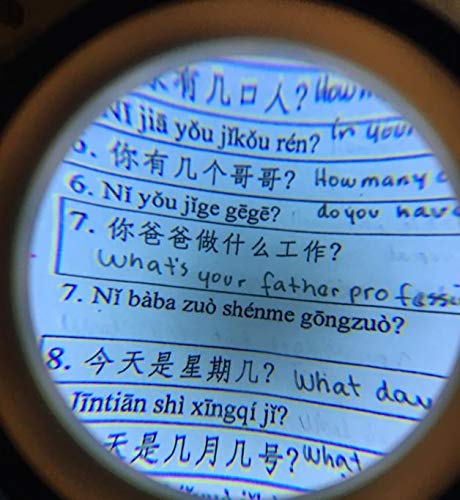 有几口人? How
Nǐ jiā yǒu jǐkǒu rén? In your
你有几个哥哥? How many
6. Nǐ yǒu jǐge gēgē? do you have
7. 你爸爸做什么工作?
What's your father profess
7. Nǐ bàba zuò shénme gōngzuò?
8. 今天是星期几? What day
Jīntiān shì xīngqí jǐ?
天是几月几号? What